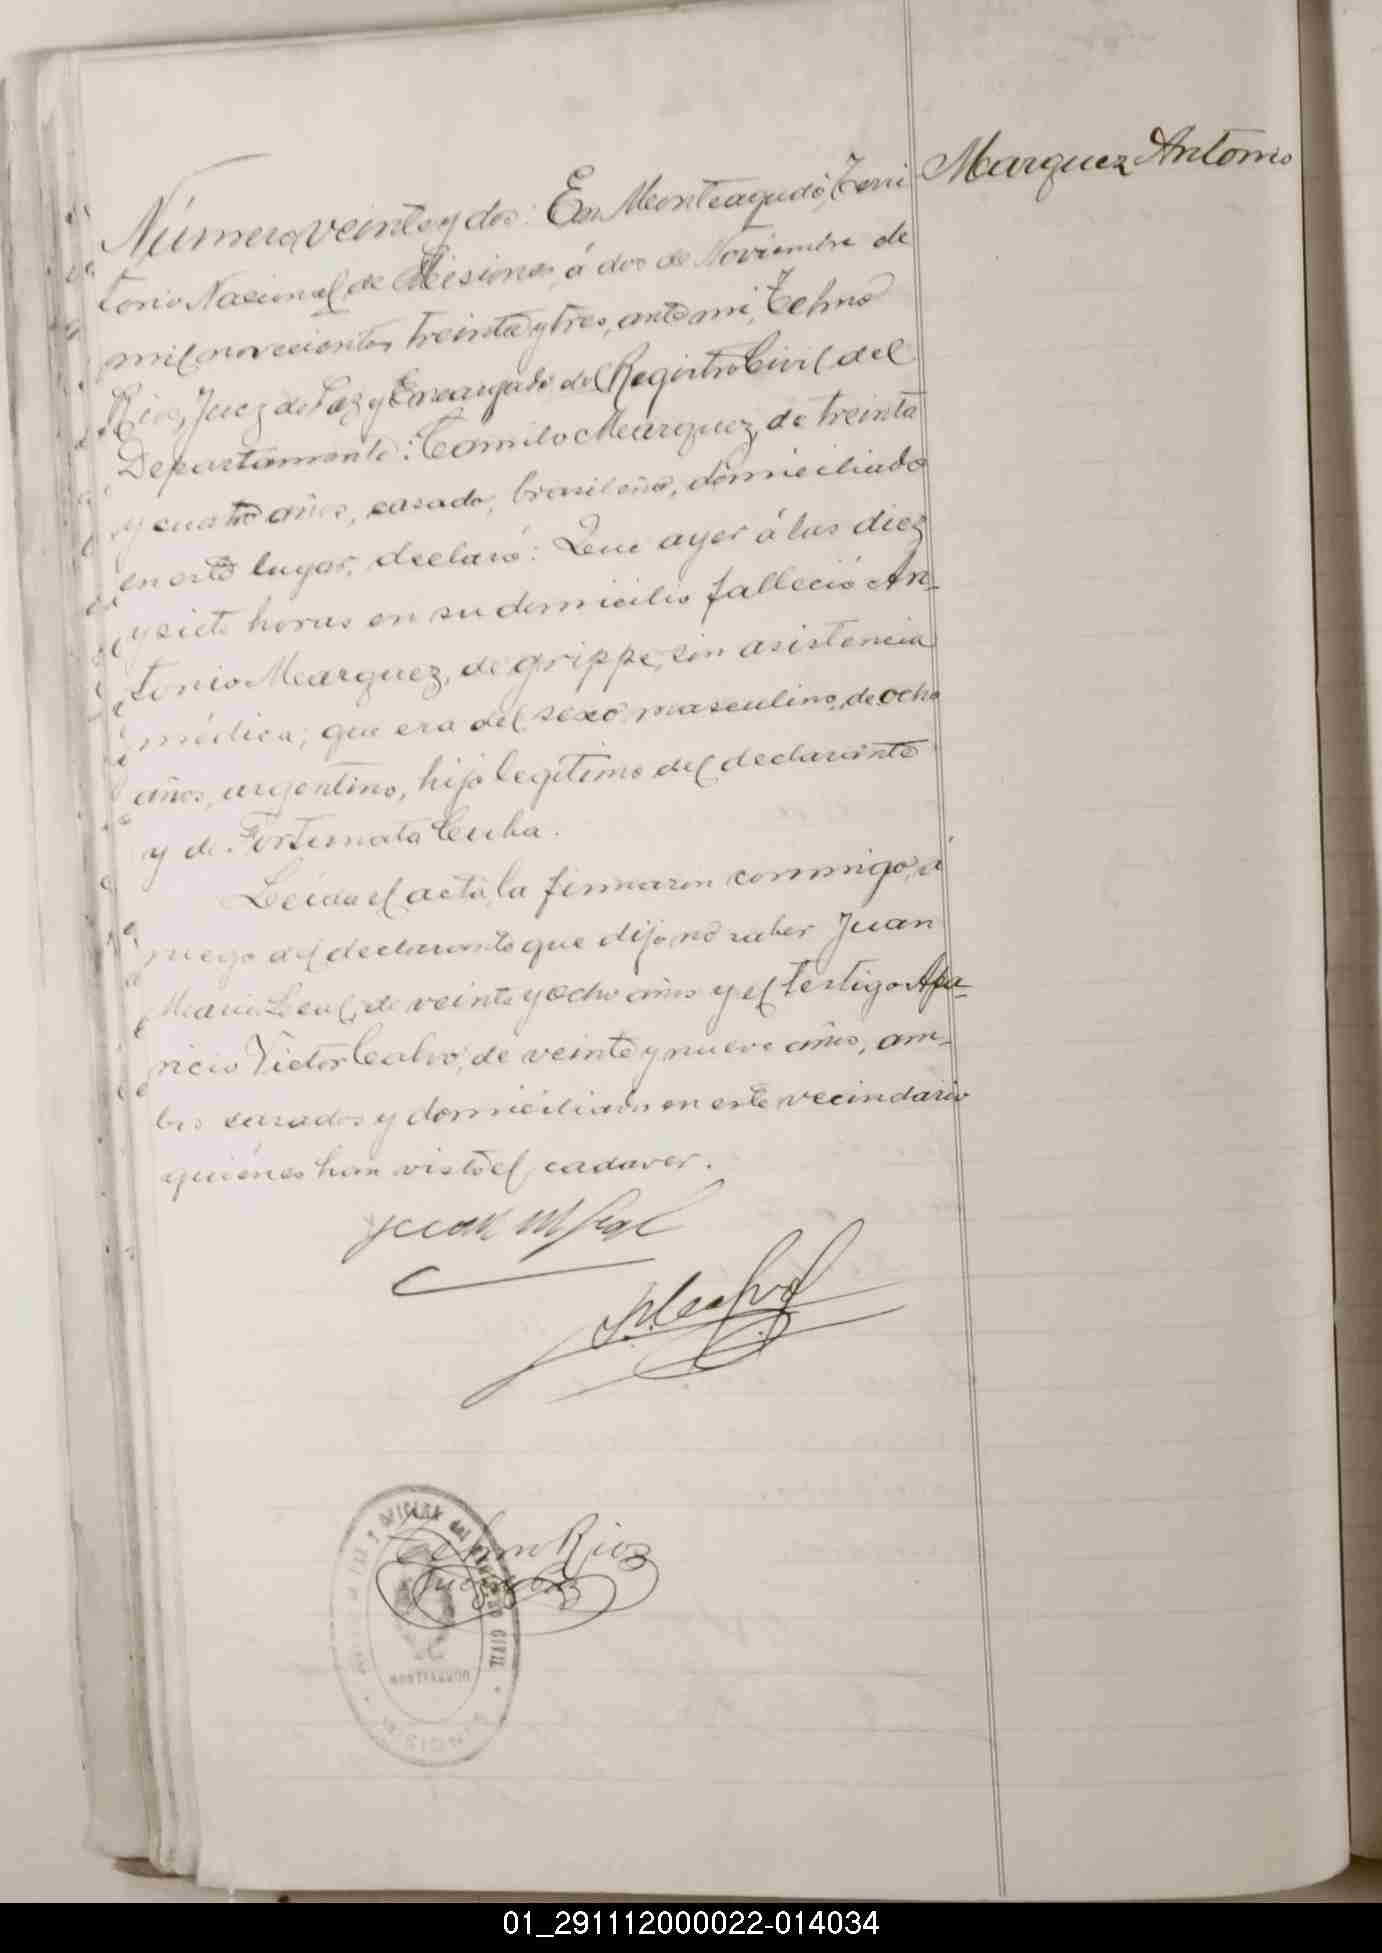 Marquez Antonio
Número veinte y dos: En Monteagudo, Terri
torio Nacional de Misiones, á dos de Noviembre de
mil novecientos treinta y tres, ante mi, Telmo
Rios, Juez de Paz y Encargado del Registro Civil del
Departamento: Camilo Marquez, de treinta
y cuatro años, casado, brasileño, domiciliado
en este lugar, declaró: Que ayer á las diez
y siete horas en su domicilio falleció An-
tonio Marquez, de grippe, sin asistencia
médica; que era del sexo masculino, de ocho
años, argentino, hijo legítimo del declarante
y de Fortunata Cuba.
Leida el acta, la firmaron conmigo, á
ruego del declarante que dijo no saber Juan
Maria Leal, de veinte y ocho años y el testigo Apa-
ricio Victor Calvo, de veinte y nueve años, am-
bos casados y domiciliados en este vecindario
quiénes han visto el cadaver.
Juan M Leal
Calvo
Telmo Rios
Juez de Paz
OFICINA del REGISTRO CIVIL
MONTEAGUDO
MISIONES
01_291112000022-014034